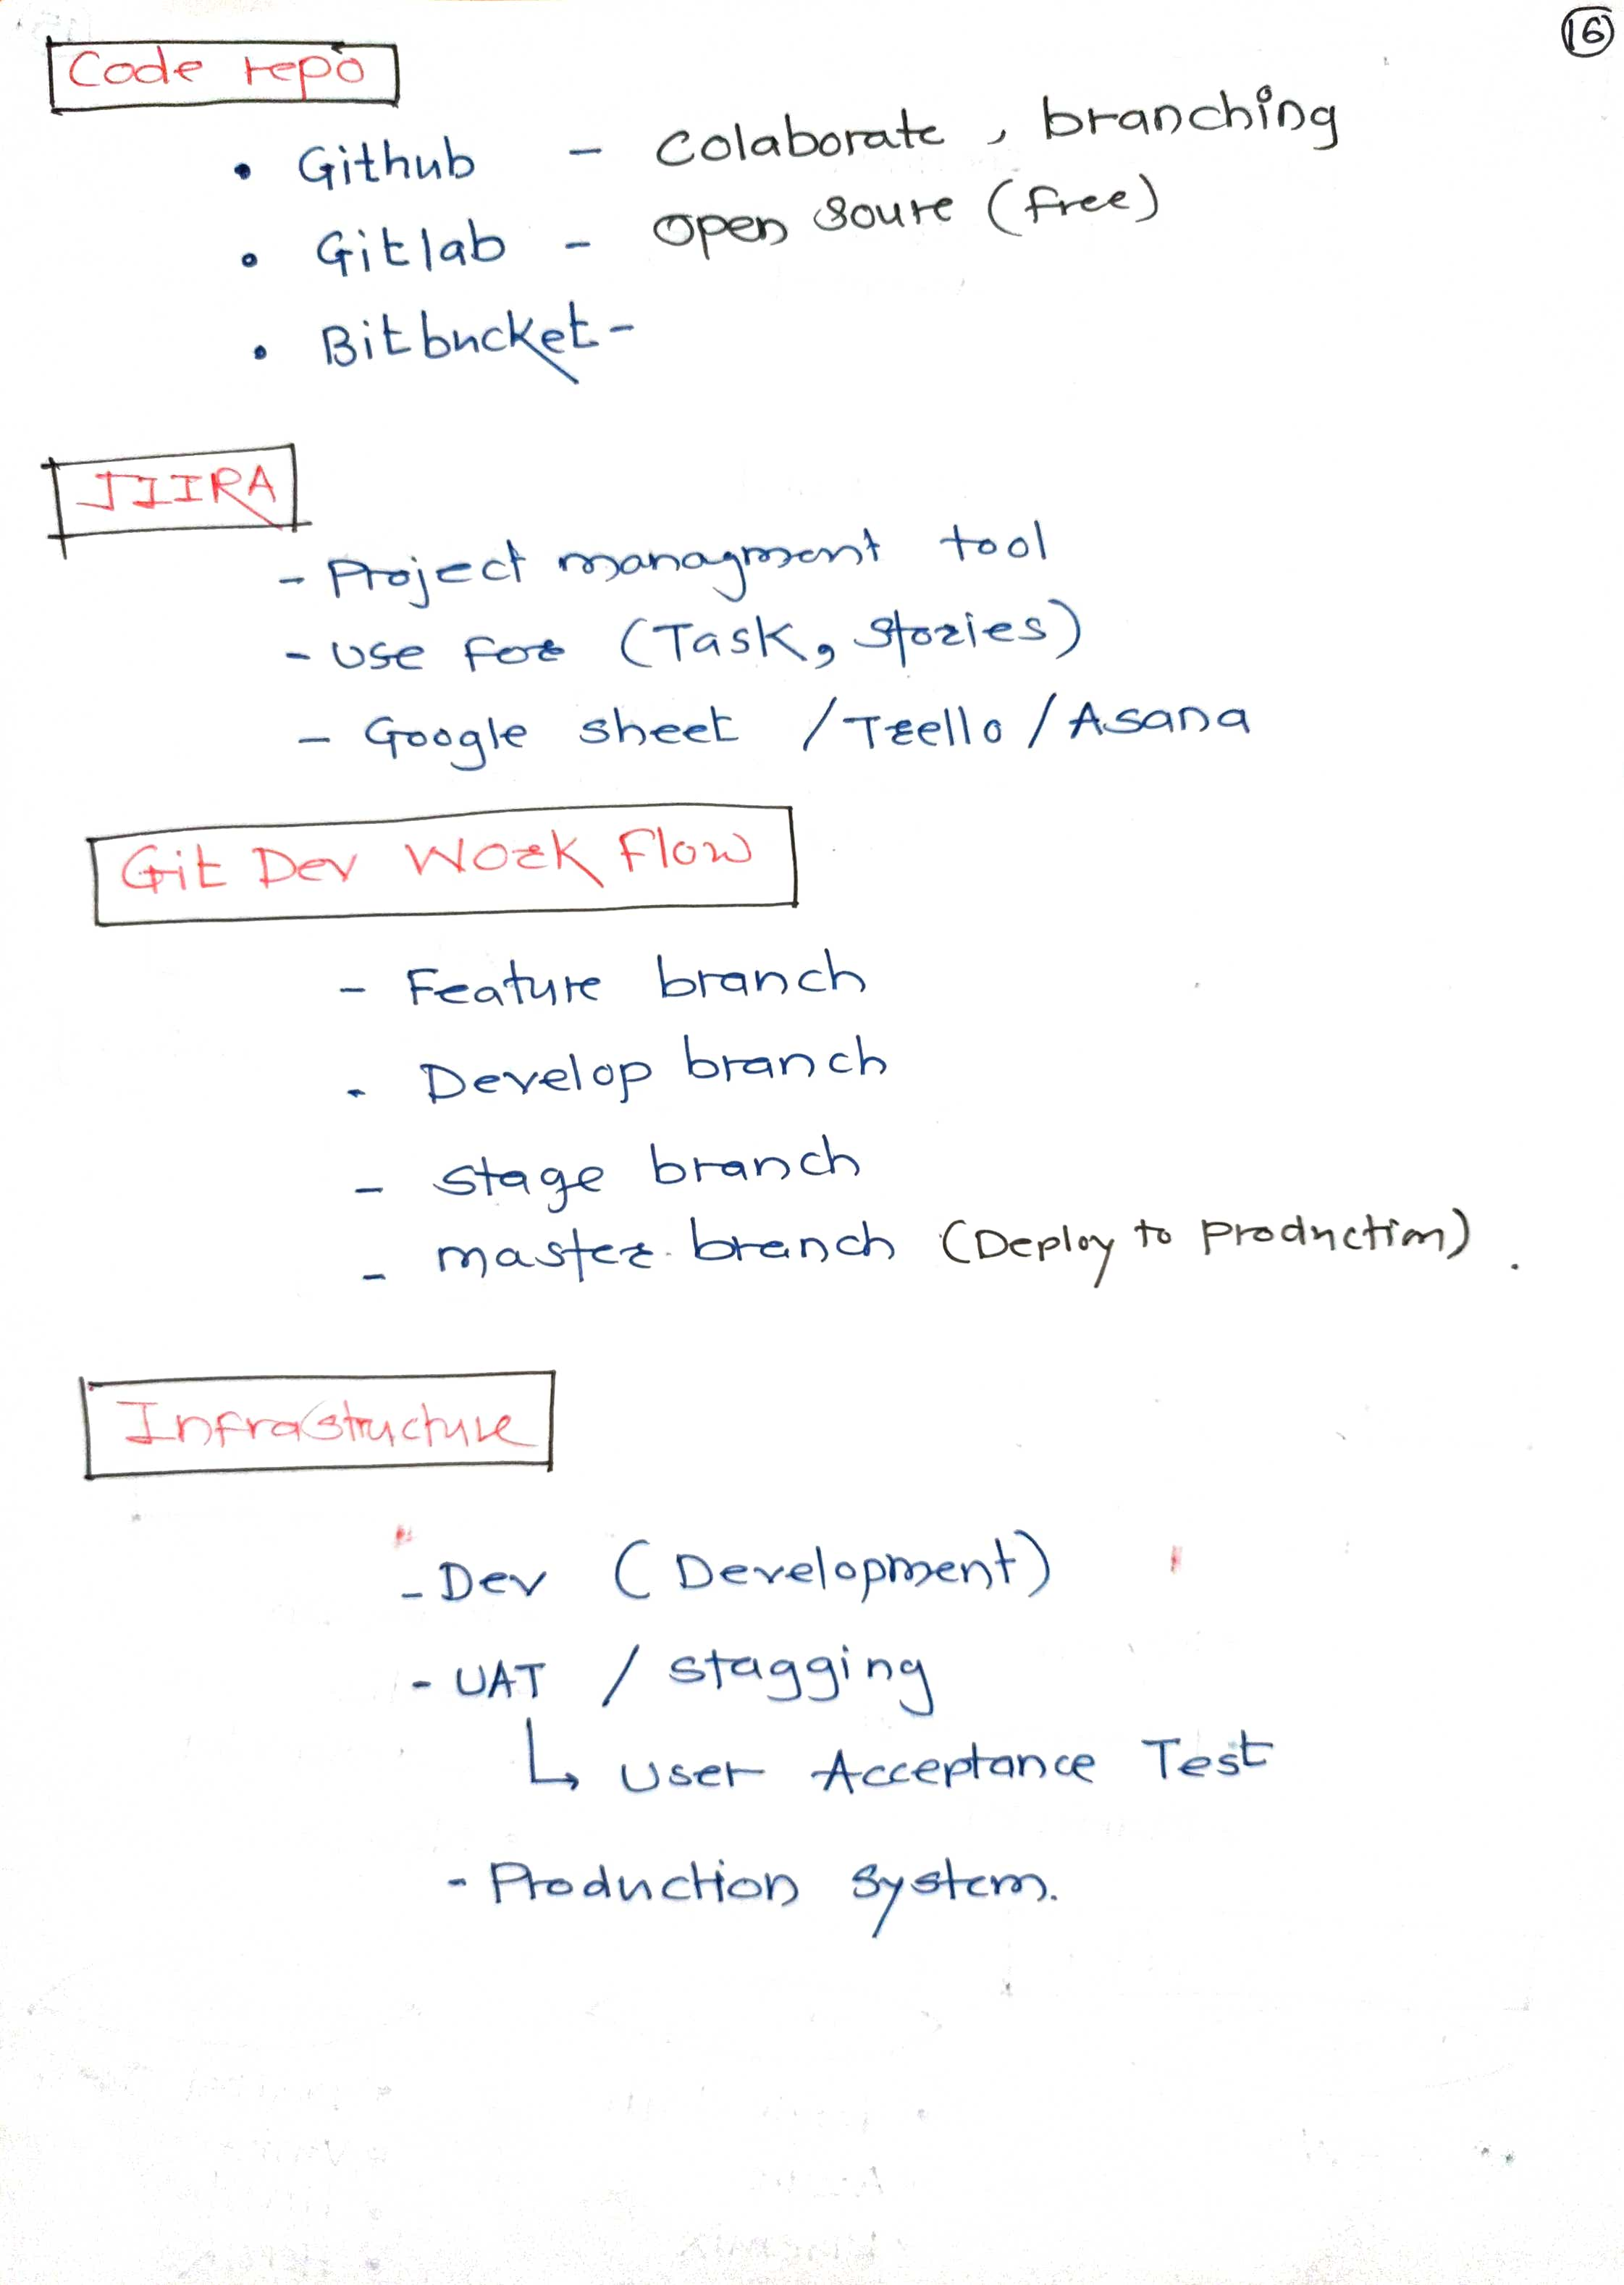 16
Code repo
• Github - Colaborate, branching
• Gitlab - open soure (free)
• Bitbucket -
JIIRA
- Project managment tool
- Use for (Task, stories)
- Google sheet / Trello / Asana
Git Dev Work Flow
- Feature branch
- Develop branch
- stage branch
- master branch (Deploy to production).
Infrastructure
- Dev (Development)
- UAT / stagging
↳ User Acceptance Test
- Production system.